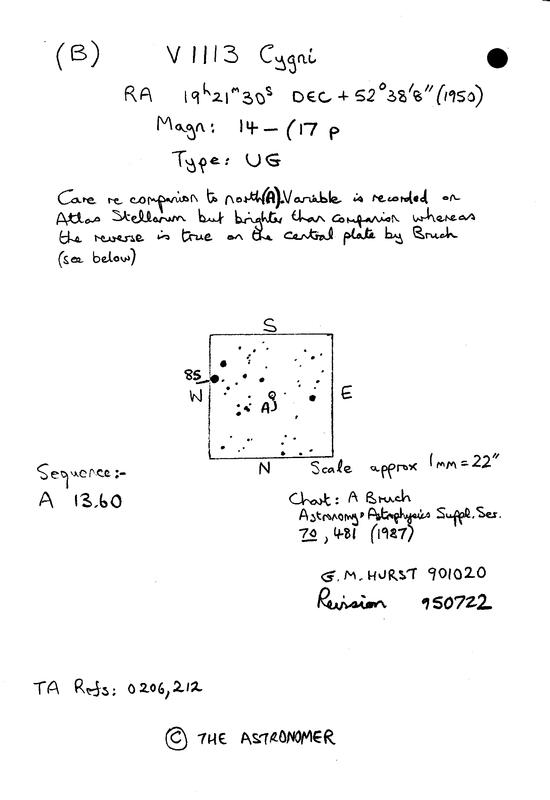 (B) V1113 Cygni
RA 19h21m30s DEC +52°38'8" (1950)
Magn: 14 – (17 p
Type: UG
Care re companion to north(A). Variable is recorded on
Atlas Stellarum but brighter than companion whereas
the reverse is true on the central plate by Bruch
(see below)
S
85
W
E
A
N
Scale approx 1mm = 22"
Sequence:-
A 13.60
Chart: A Bruch
Astronomy & Astrophysics Suppl. Ser.
70, 481 (1987)
G.M. HURST 901020
Revision 950722
TA Refs: 0206,212
© THE ASTRONOMER